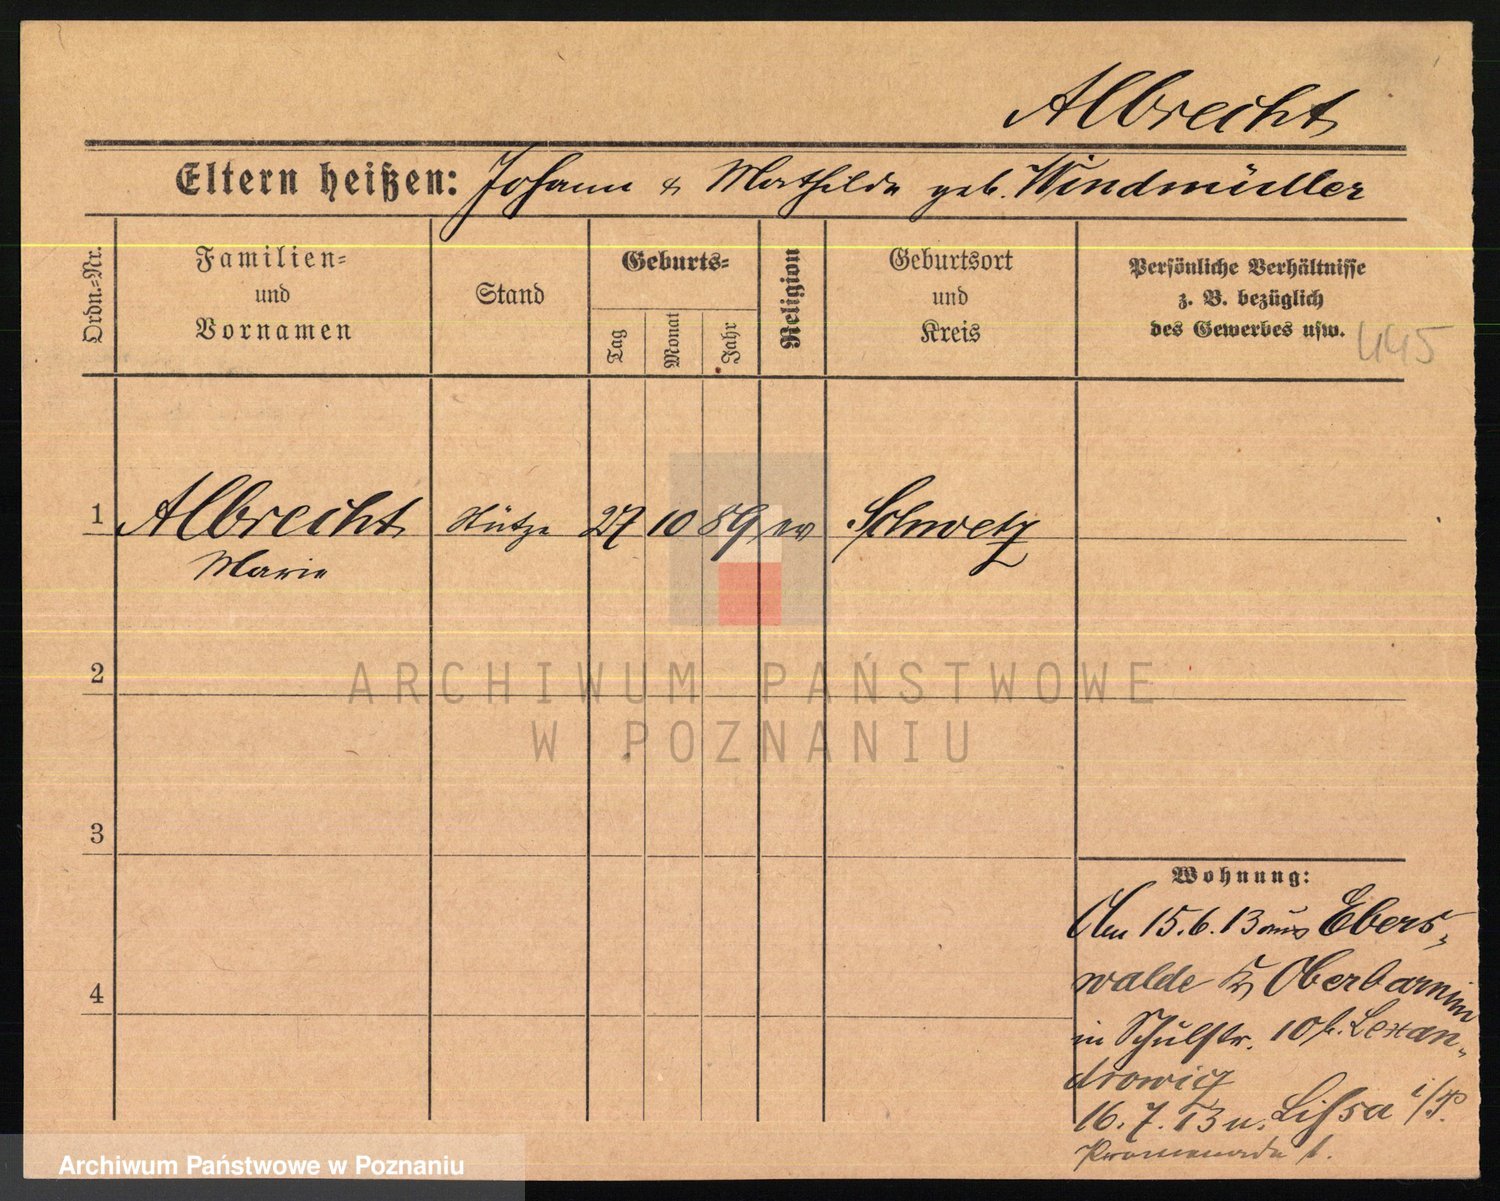 Albrecht
Eltern heißen: Johann & Mathilde geb. Windmüller
Ordn.-Nr.
Familien- und Vornamen
Stand
Geburts-
Tag
Monat
Jahr
Religion
Geburtsort und Kreis
Persönliche Verhältnisse
z. B. bezüglich
des Gewerbes usw.
445
1 Albrecht Stütze 27 10 89 ev Schwetz
Marie
2
ARCHIWUM PAŃSTWOWE
W POZNANIU
3
Wohnung:
Am 15.6.13 aus Ebers-
walde Kr Oberbarnim
4
in Schulstr. 10 b. Lexan-
drowicz
16.7.13 n. Lissa i/P.
Promenade 1.
Archiwum Państwowe w Poznaniu